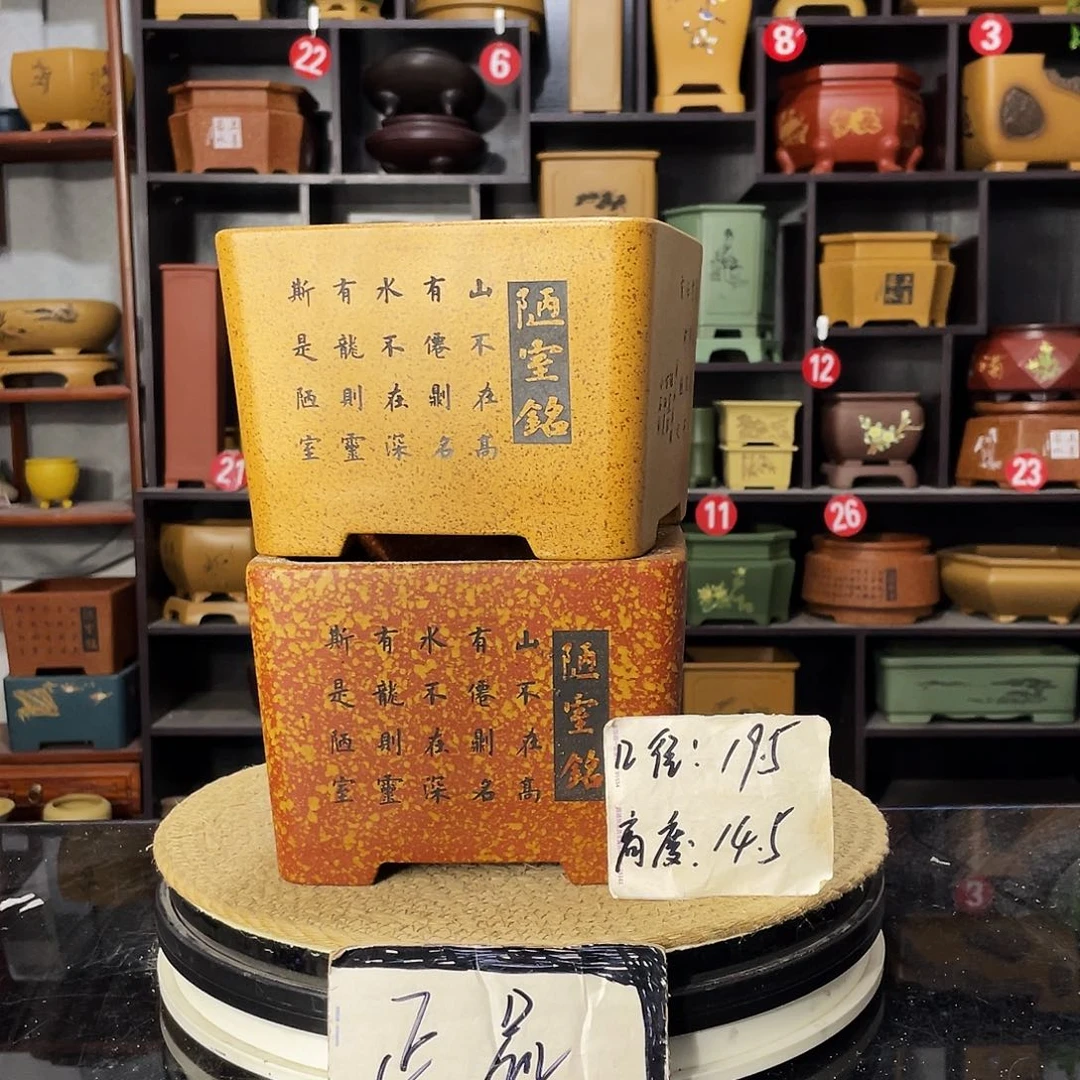 22
6
8
3
陋室銘
山不在髙
有僊則名
水不在深
有龍則靈
斯是陋室
12
21
23
11
26
陋室銘
山不在髙
有僊則名
水不在深
有龍則靈
斯是陋室
口径: 19.5
高度: 14.5
正品